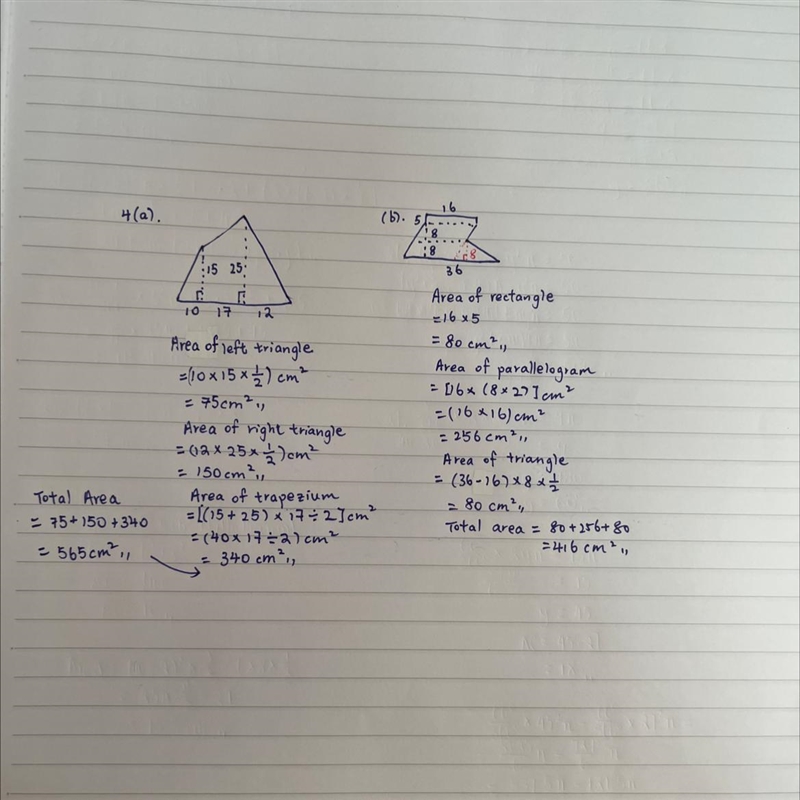 4(a).
15 25
10 17 12
Area of left triangle
=(10 × 15 × 1/2) cm²
= 75cm²,,
Area of right triangle
=(12 × 25 × 1/2)cm²
= 150cm²,,
Area of trapezium
=[(15 + 25) × 17 ÷ 2] cm²
=(40 × 17 ÷ 2) cm²
= 340 cm²,,
Total Area
= 75+150+340
= 565cm²,,
(b).
16
5
8
8 8
36
Area of rectangle
=16 × 5
= 80 cm²,,
Area of parallelogram
= [16 × (8 × 2)] cm²
=(16 × 16)cm²
= 256 cm²,,
Area of triangle
= (36-16) × 8 × 1/2
= 80 cm²,,
Total area = 80+256+80
=416 cm²,,